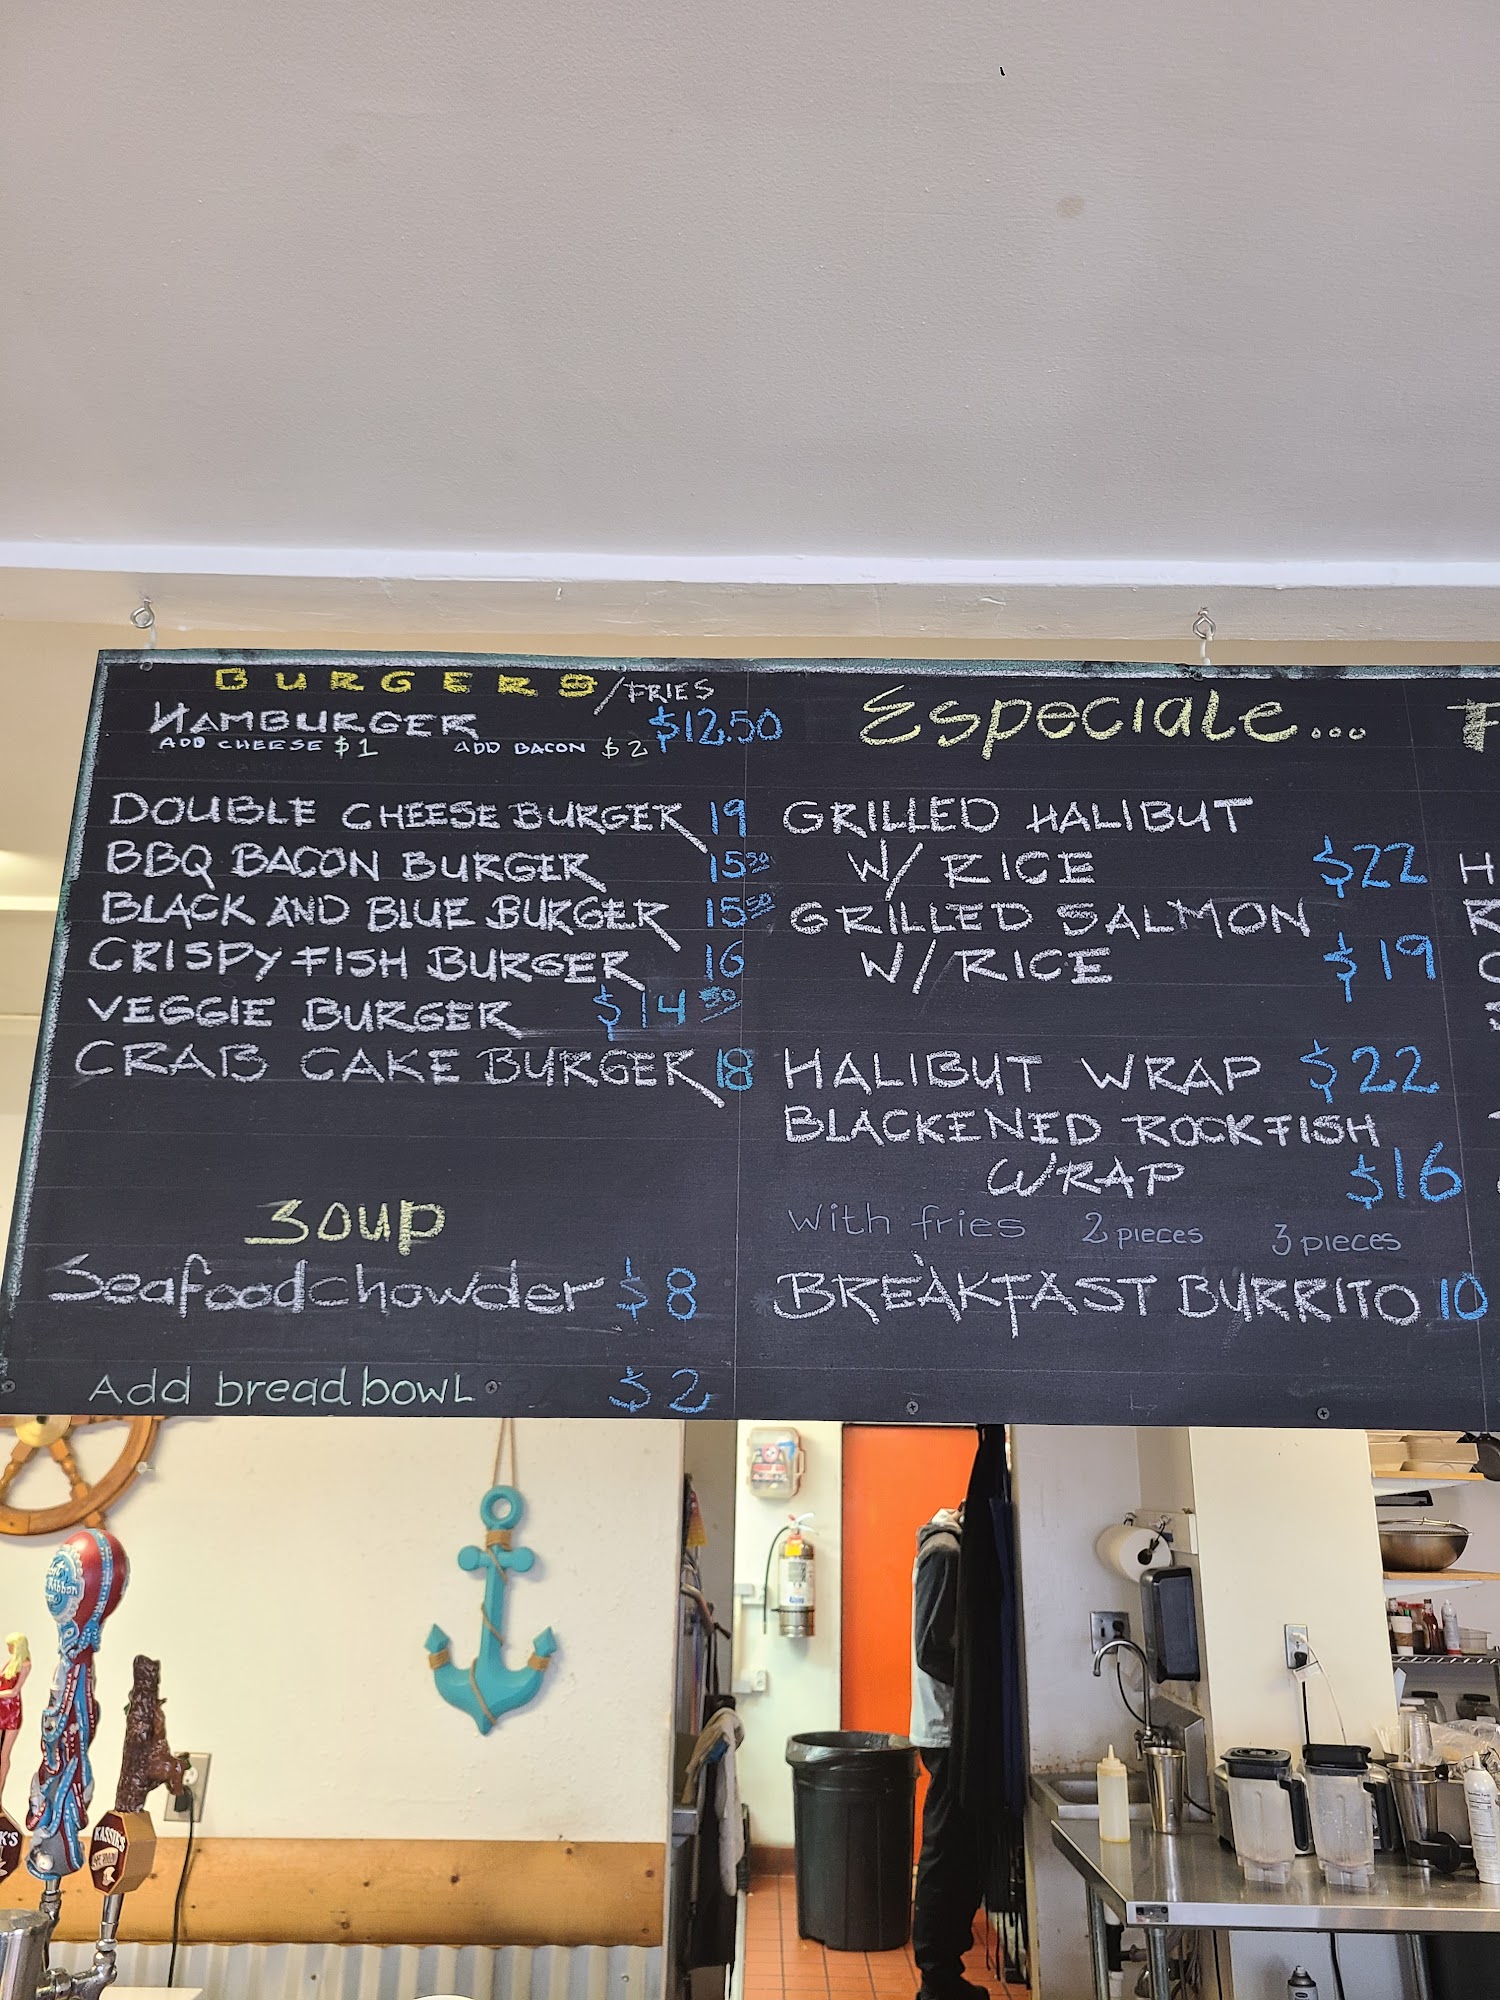 BURGERS/FRIES
HAMBURGER $12.50
ADD CHEESE $1 ADD BACON $2
DOUBLE CHEESE BURGER 19
BBQ BACON BURGER 15.50
BLACK AND BLUE BURGER 15.50
CRISPY FISH BURGER 16
VEGGIE BURGER $14.50
CRAB CAKE BURGER 18
Soup
Seafood chowder $8
Add bread bowl $2
Especiale...
GRILLED HALIBUT
W/ RICE $22
GRILLED SALMON
W/ RICE $19
HALIBUT WRAP $22
BLACKENED ROCKFISH
WRAP $16
With fries 2 pieces 3 pieces
BREAKFAST BURRITO 10
Ribbon
KASSIK'S
K'S